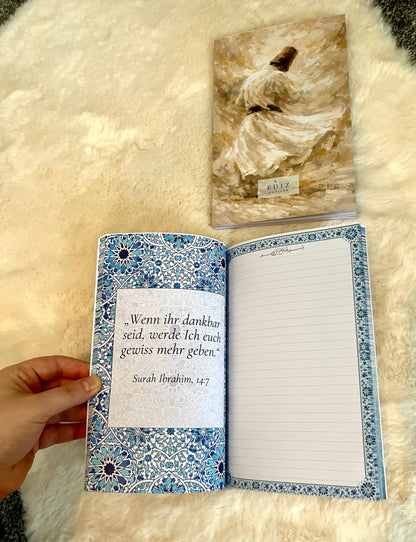 EDIZ
„Wenn ihr dankbar
seid, werde Ich euch
gewiss mehr geben."
Surah Ibrahim, 14:7